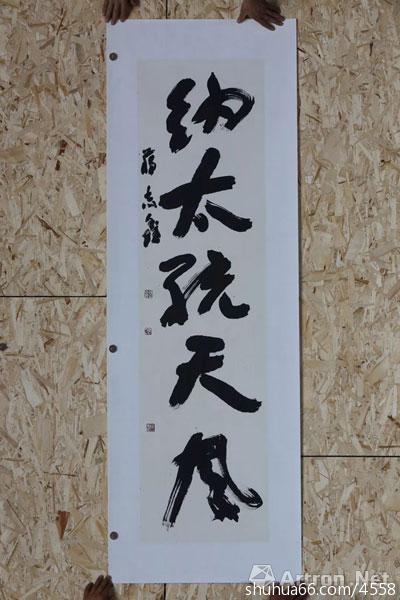 納太統天風
蒋志鑫
Artron.Net
shuhua66.com/4558